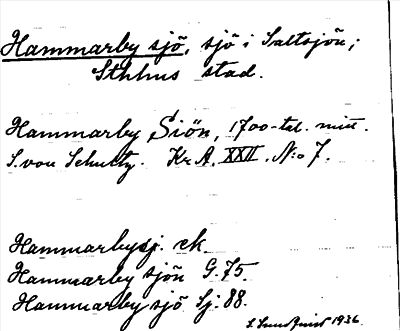 Hammarby sjö, sjö i Saltsjön;
Sthlms stad.
Hammarby Siön, 1700-tal. mitt.
S. von Schultz. Kr A. XXII. N:o 7.
Hammarbysj. ek.
Hammarby sjön G. 75
Hammarby sjö Sj. 88.
1936